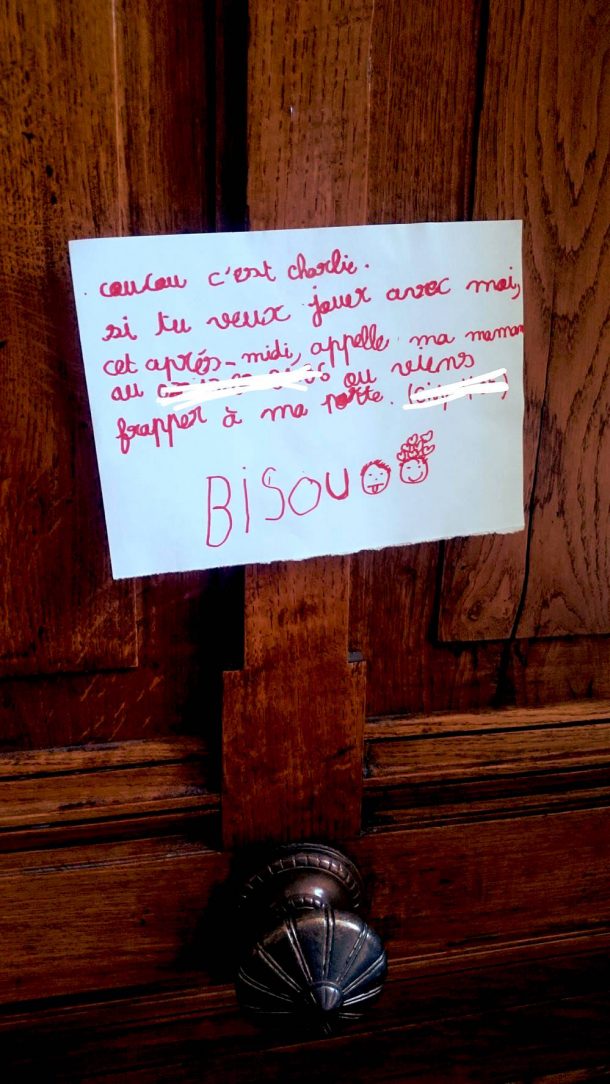 coucou c'est charlie.
si tu veux jouer avec moi,
cet après-midi, appelle ma maman
au ou viens
frapper à ma porte.
BISOU